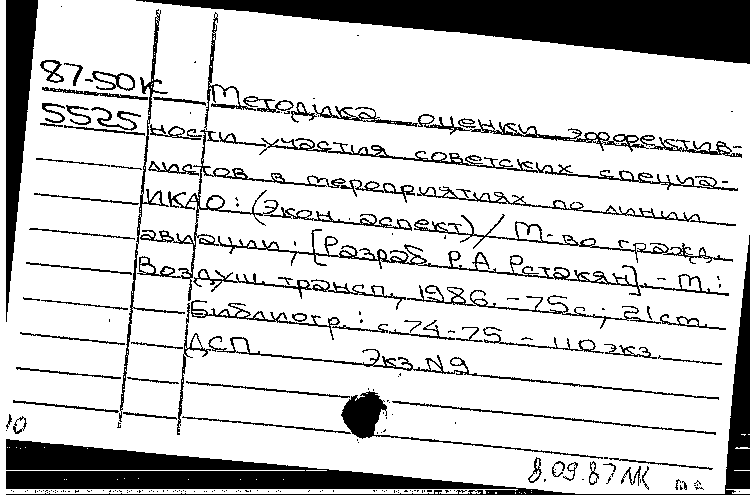 87-50к Методика оценки эффектив-
5525 ности участия советских специа-
листов в мероприятиях по линии
ИКАО: (Экон. аспект) / М-во гражд.
авиации; [Разраб. Р.А. Рстакян]. - М.:
Воздуш. трансп., 1986. - 75с.; 21см.
Библиогр.: с.74-75 - 110 экз.
ДСП. Экз. N9.
8.09.87